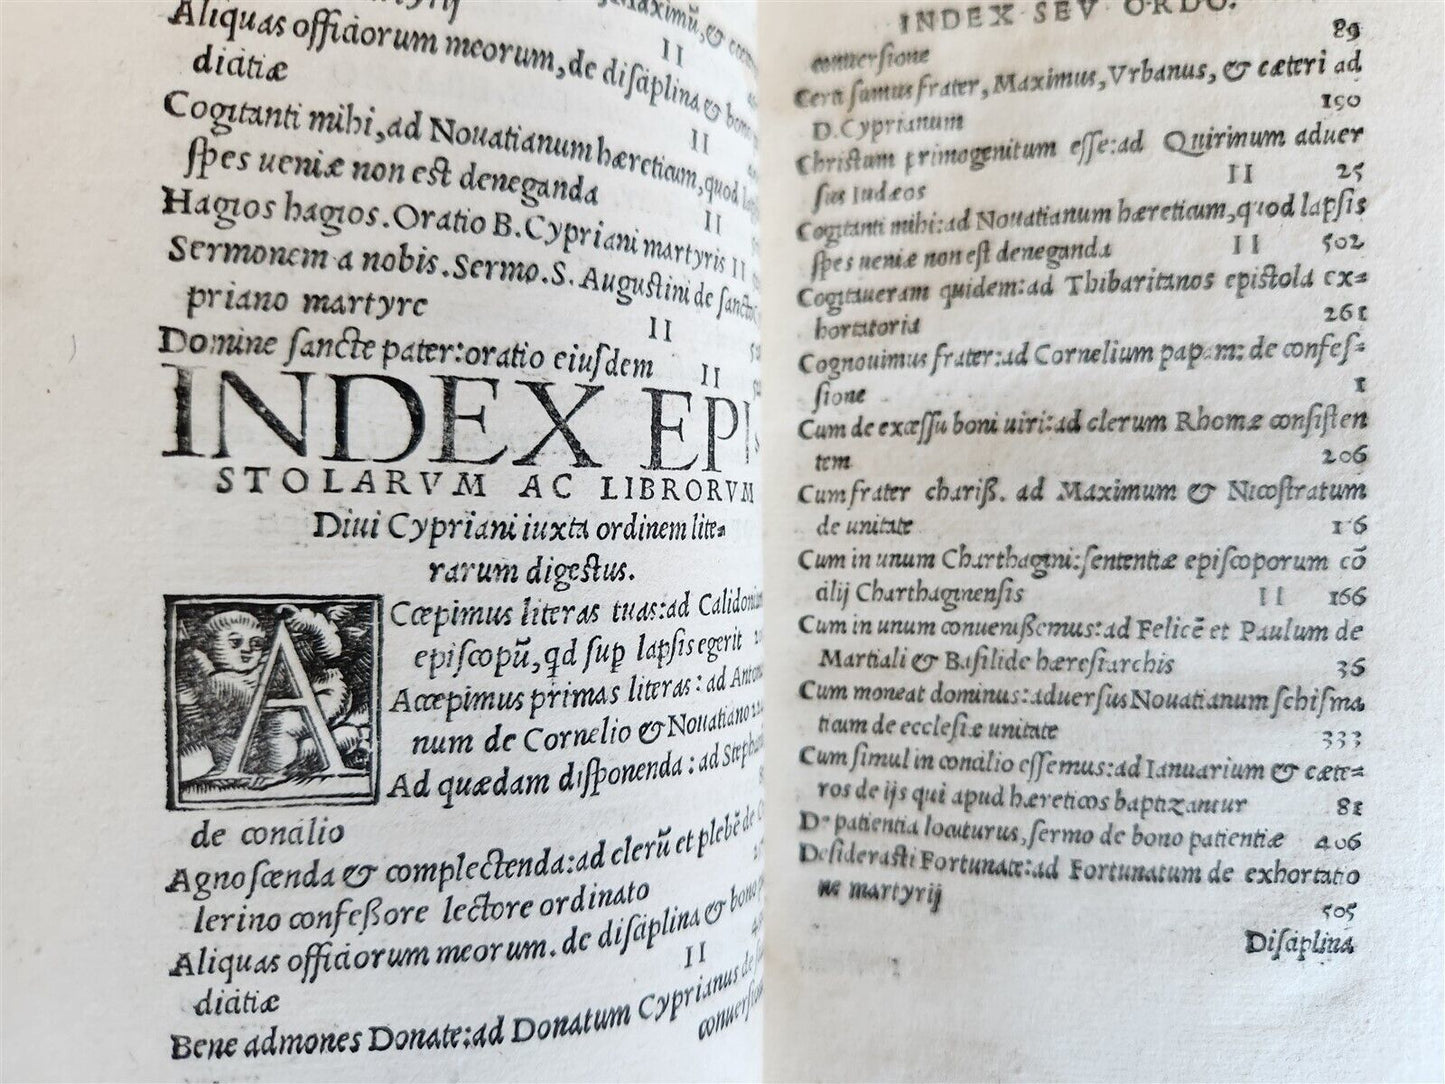 martyrij
Maximū, &
II
Aliquas officiorum meorum, de disciplina & bono
dicitiæ
II
Cogitanti mihi, ad Nouatianum hæreticum, quod
spes ueniæ non est deneganda
II
Hagios hagios. Oratio B. Cypriani martyris II
Sermonem a nobis. Sermo. S. Augustini de sancto
priano martyre
II
Domine sancte pater: oratio eiusdem II
INDEX EPI
STOLARVM AC LIBRORVM
Diui Cypriani iuxta ordinem lite=
rarum digestus.
ACcœpimus literas tuas: ad
episcopū, qd sup lapsis egerit
Accœpimus primas literas: ad
num de Cornelio & Nouatiano
Ad quædam disponenda: ad
de concilio
Agnoscenda & complectenda: ad clerū et plebē de
lerino confeßore lectore ordinato
Aliquas officiorum meorum. de disciplina & bono
dicitiæ II
Bene admones Donate: ad Donatum Cyprianus de
conuersione
INDEX SEV ORDO.
conuersione 89
Certi sumus frater, Maximus, Vrbanus, & cæteri ad
D. Cyprianum 190
Christum primogenitum esse: ad Quirinum aduer
sus Iudæos II 25
Cogitanti mihi: ad Nouatianum hæreticum, quod lapsis
spes ueniæ non est deneganda II 502
Cogitaueram quidem: ad Thibaritanos epistola ex=
hortatoria 261
Cognouimus frater: ad Cornelium papam: de confes=
sione 1
Cum de excæssu boni uiri: ad clerum Rhomæ consisten
tem 206
Cum frater chariß. ad Maximum & Nicostratum
de unitate 116
Cum in unum Charthagini: sententiæ episcoporum cō
cilij Charthaginensis II 166
Cum in unum conuenißemus: ad Felicē et Paulum de
Martiali & Basilide hæresiarchis 36
Cum moneat dominus: aduersus Nouatianum schisma
ticum de ecclesiæ unitate 333
Cum simul in concilio essemus: ad Ianuarium & cæte=
ros de ijs qui apud hæreticos baptizantur 81
De patientia locuturus, sermo de bono patientiæ 406
Desiderasti Fortunate: ad Fortunatum de exhortatio
ne martyrij 505
Disciplina